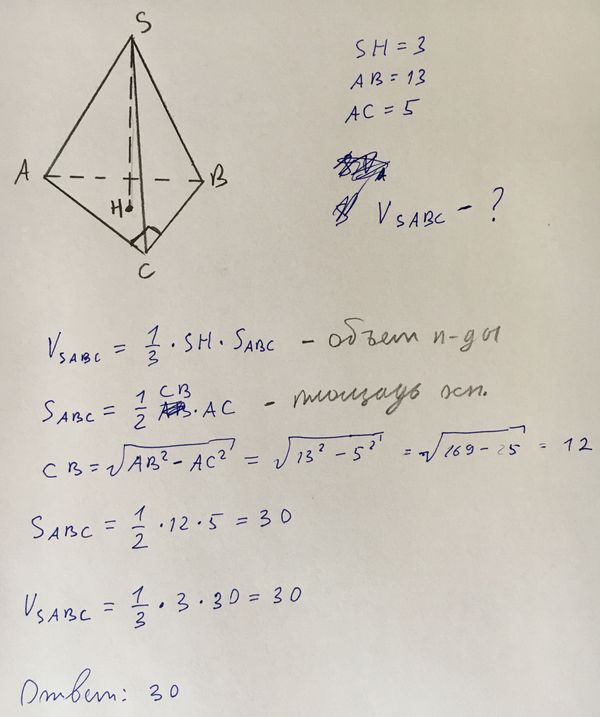 S
A
B
H
C
SH = 3
AB = 13
AC = 5
V SABC - ?
V SABC = 1/3 · SH · S ABC - объем п-ды
S ABC = 1/2 CB · AC - площадь осн.
CB = √(AB² - AC²) = √(13² - 5²) = √(169 - 25) = 12
S ABC = 1/2 · 12 · 5 = 30
V SABC = 1/3 · 3 · 30 = 30
Ответ: 30